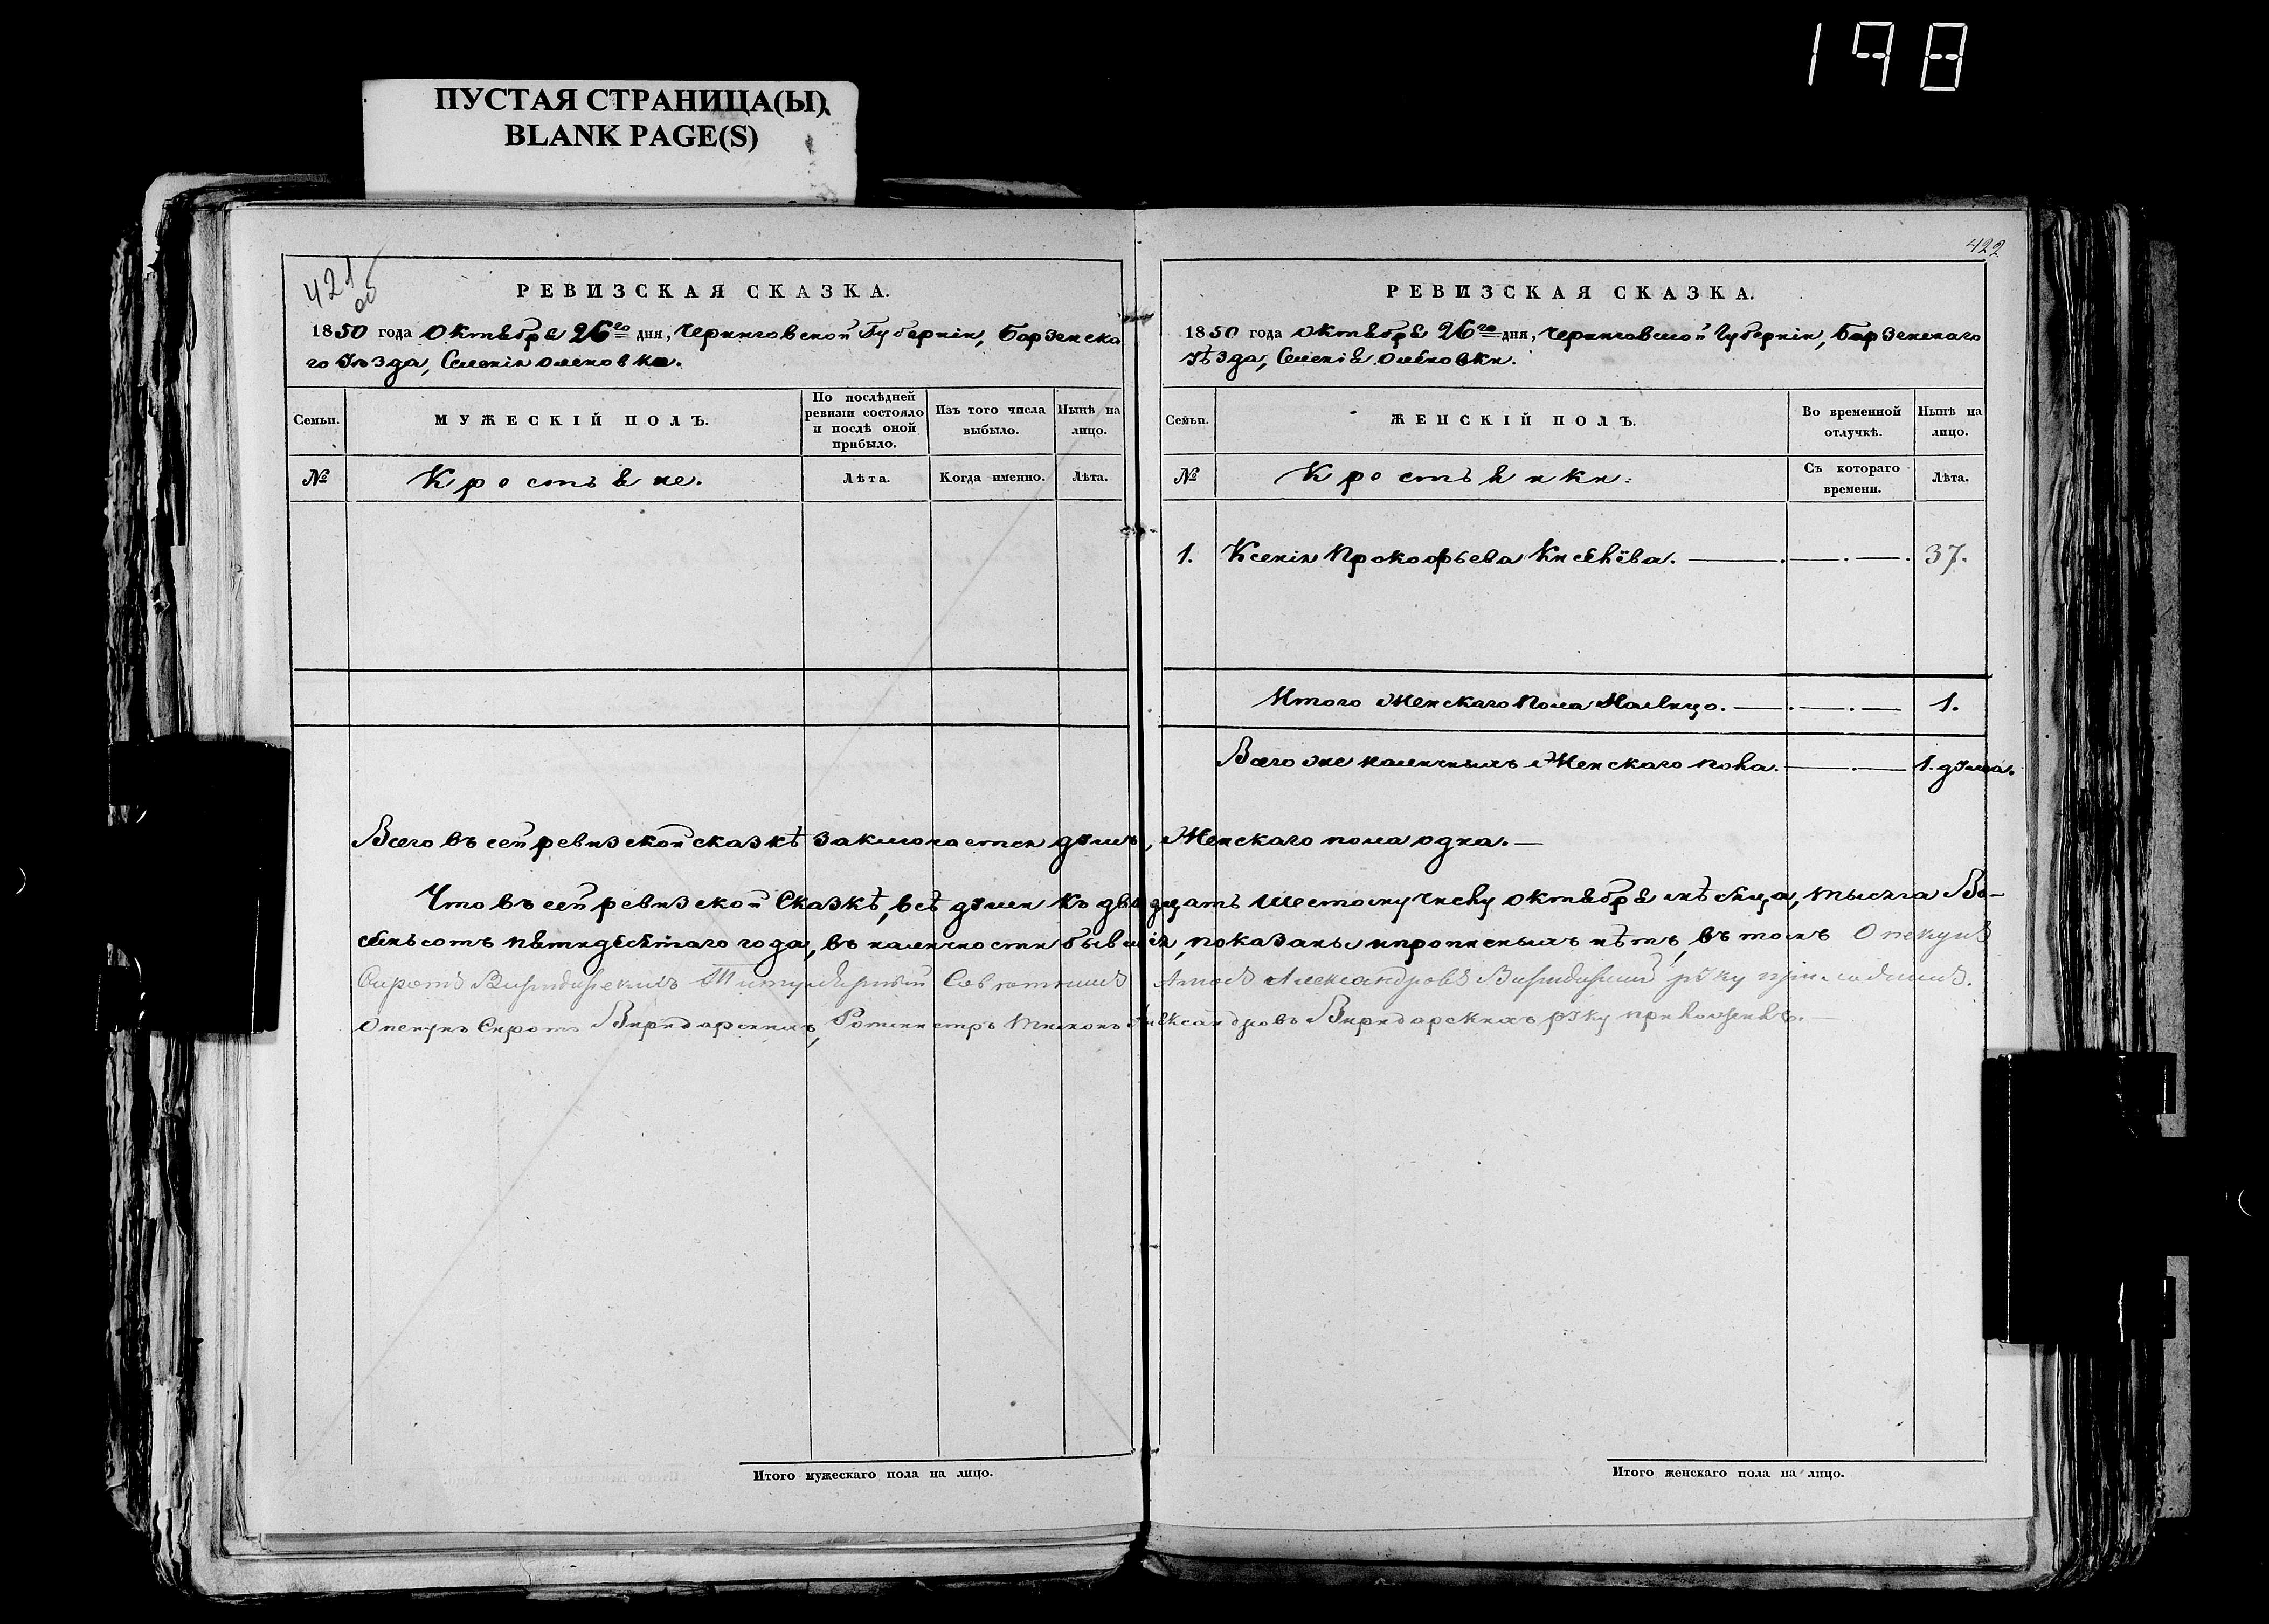 198
ПУСТАЯ СТРАНИЦА(Ы)
BLANK PAGE(S)
421
об
РЕВИЗСКАЯ СКАЗКА.
1850 года Октября 26го дня, Черниговской Губерніи, Борзенска
го уѣзда, Селенія Оленовки.
Семьи.
МУЖЕСКІЙ ПОЛЪ.
По послѣдней ревизіи состояло и послѣ оной прибыло.
Изъ того числа выбыло.
Нынѣ на лицо.
№
Крестьяне.
Лѣта.
Когда именно.
Лѣта.
Итого мужескаго пола на лицо.
422
РЕВИЗСКАЯ СКАЗКА.
1850 года Октября 26го дня, Черниговской Губерніи, Борзенскаго
уѣзда, Селенія Оленовки.
Семьи.
ЖЕНСКІЙ ПОЛЪ.
Во временной отлучкѣ.
Нынѣ на лицо.
№
Крестьянки:
Съ котораго времени.
Лѣта.
1. Ксенія Прокофьева 37.
Итого Женскаго пола Налицо. 1.
Всего же наличныхъ Женскаго пола. 1. душа.
Всего въ сей ревизской сказкѣ заключается душъ, Женскаго пола одна.
Что въ сей ревизской Сказкѣ, всѣ души къ двадцать шестому числу Октября мѣсяца, тысяча Во-
семьсотъ пятидесятаго года, въ наличности бывшія, показаны и прописныхъ нѣтъ, въ томъ Опекунъ
Сиротъ Титулярный Совѣтникъ Александровъ руку приложилъ.
Опекунъ Сиротъ Виридарскихъ, Ротмистръ Александровъ Виридарскихъ руку приложилъ.
Итого женскаго пола на лицо.